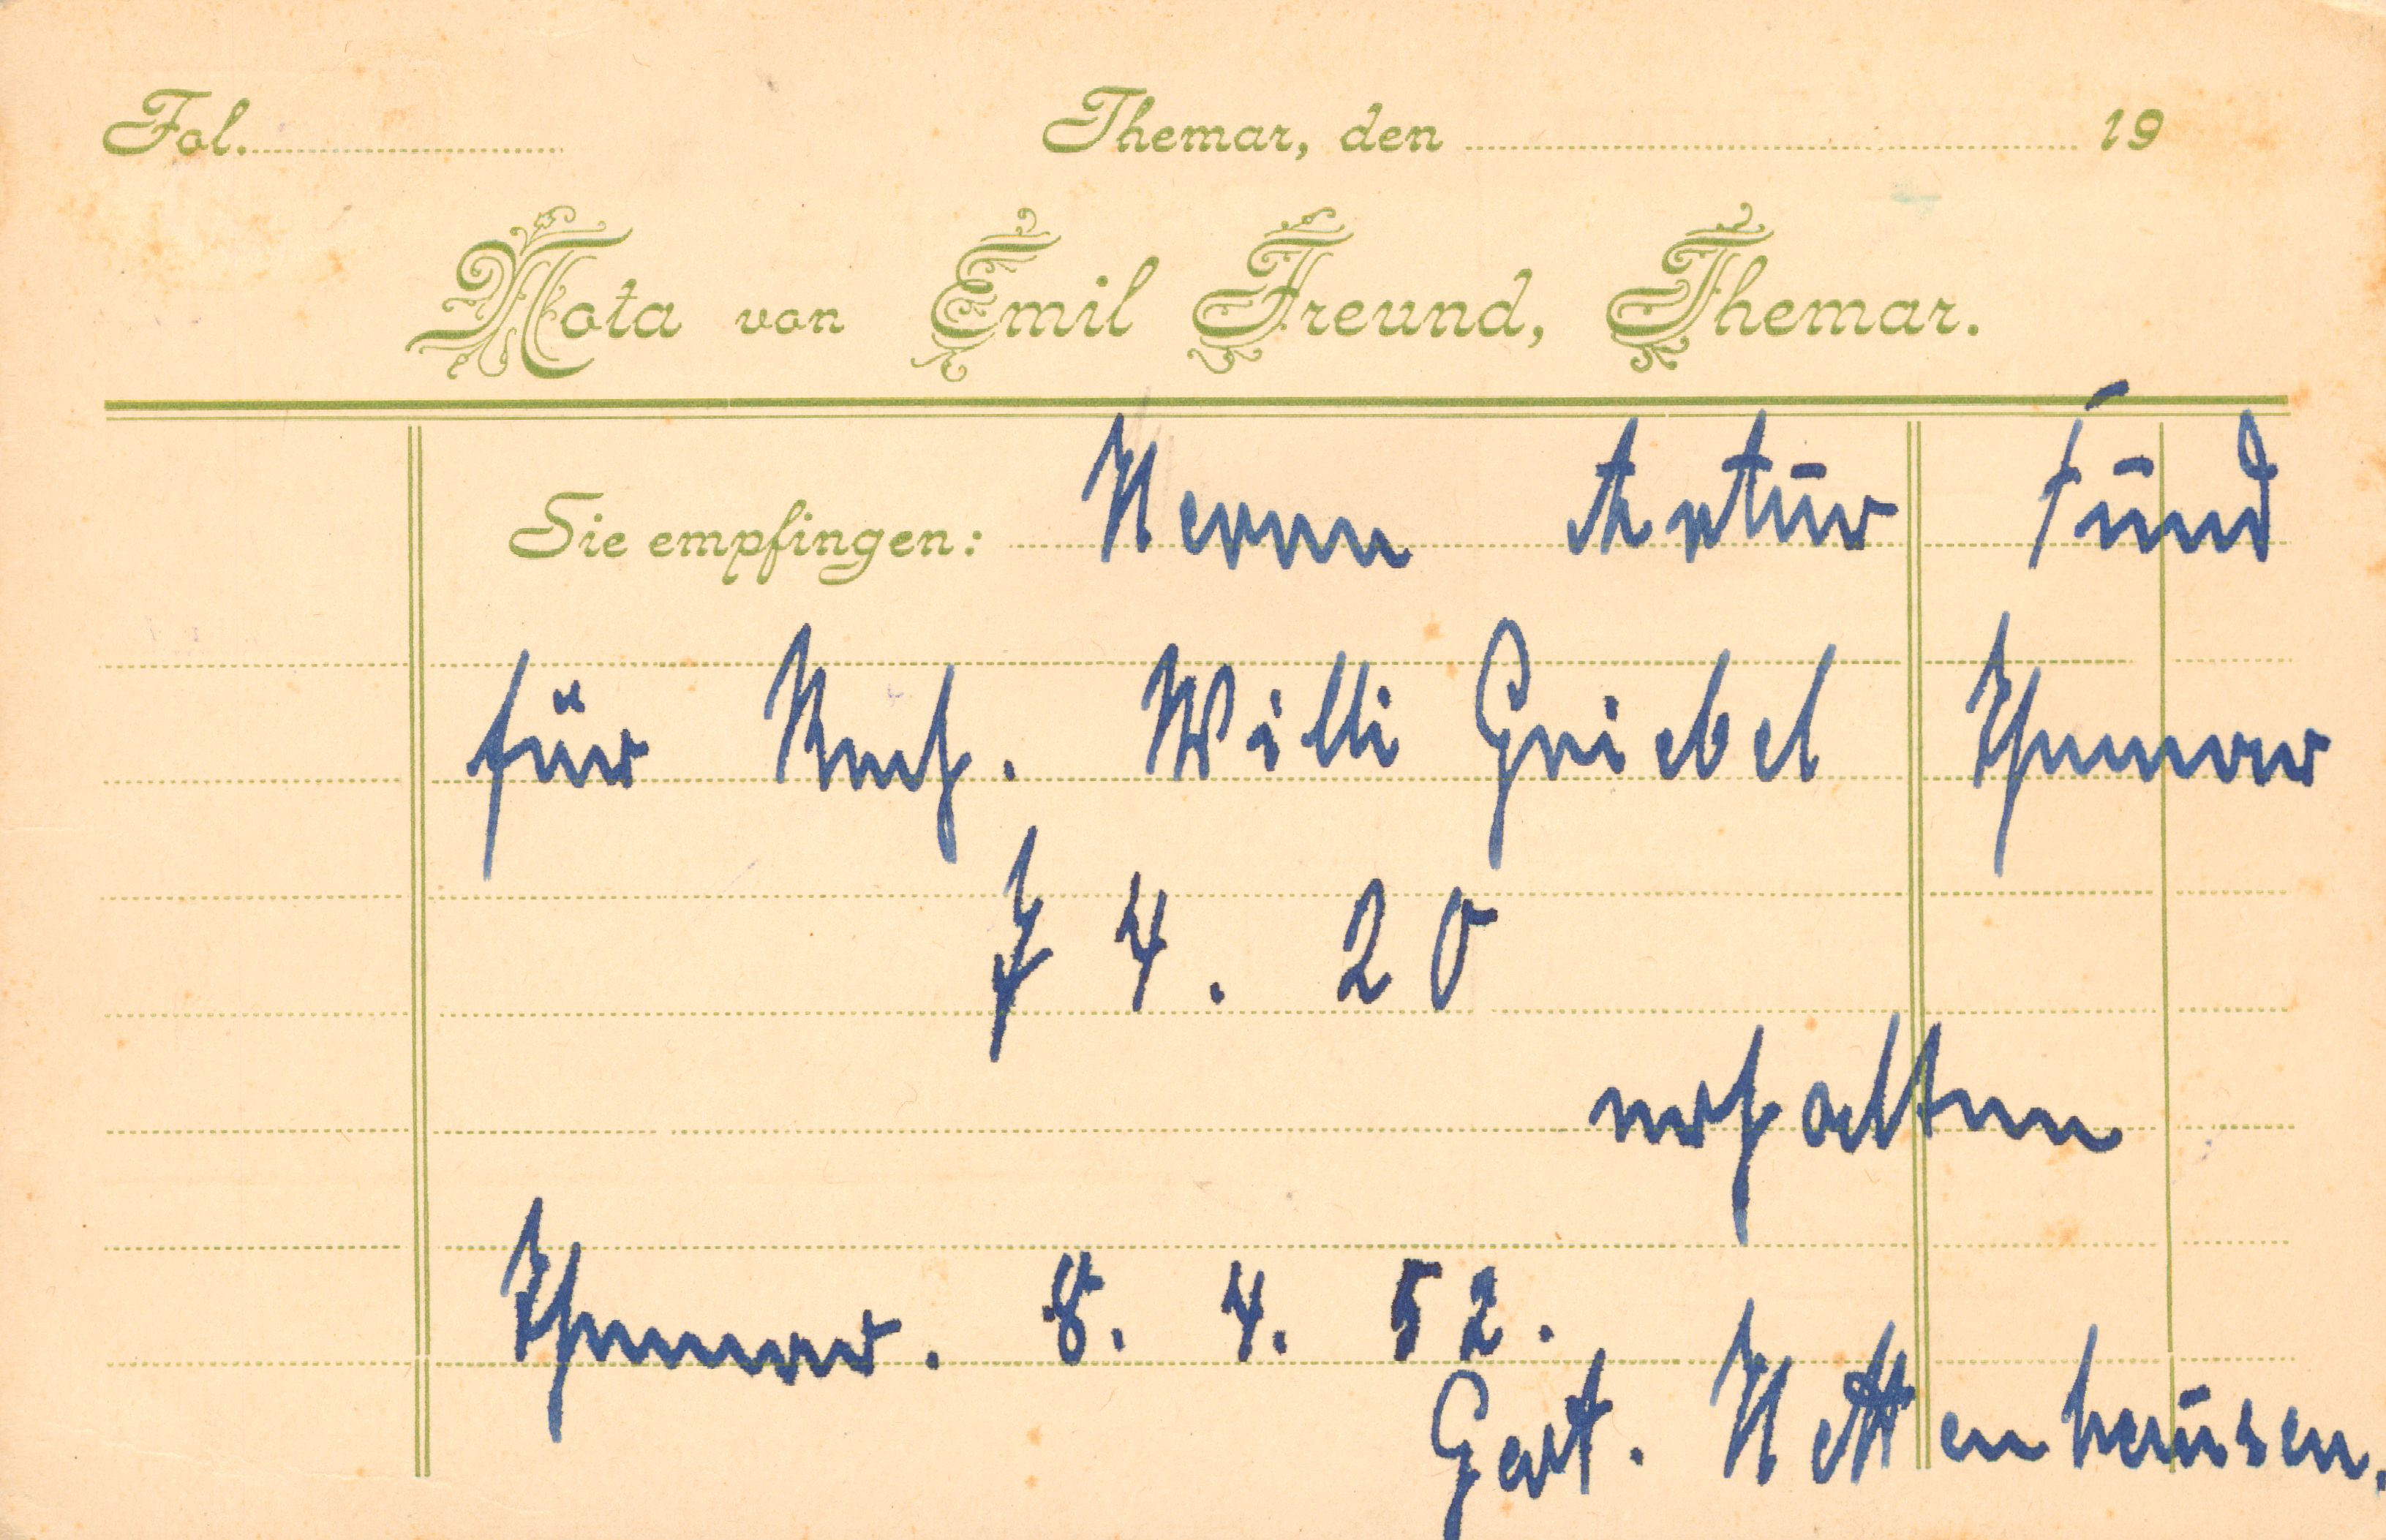 Fol. Themar, den 19
Nota von Emil Freund, Themar.
Sie empfingen: Herrn Artur Fund
für Willi Griebel Themar
4.20
erhalten
Themar. 8. 4. 52.
Gert. Hettenhausen.